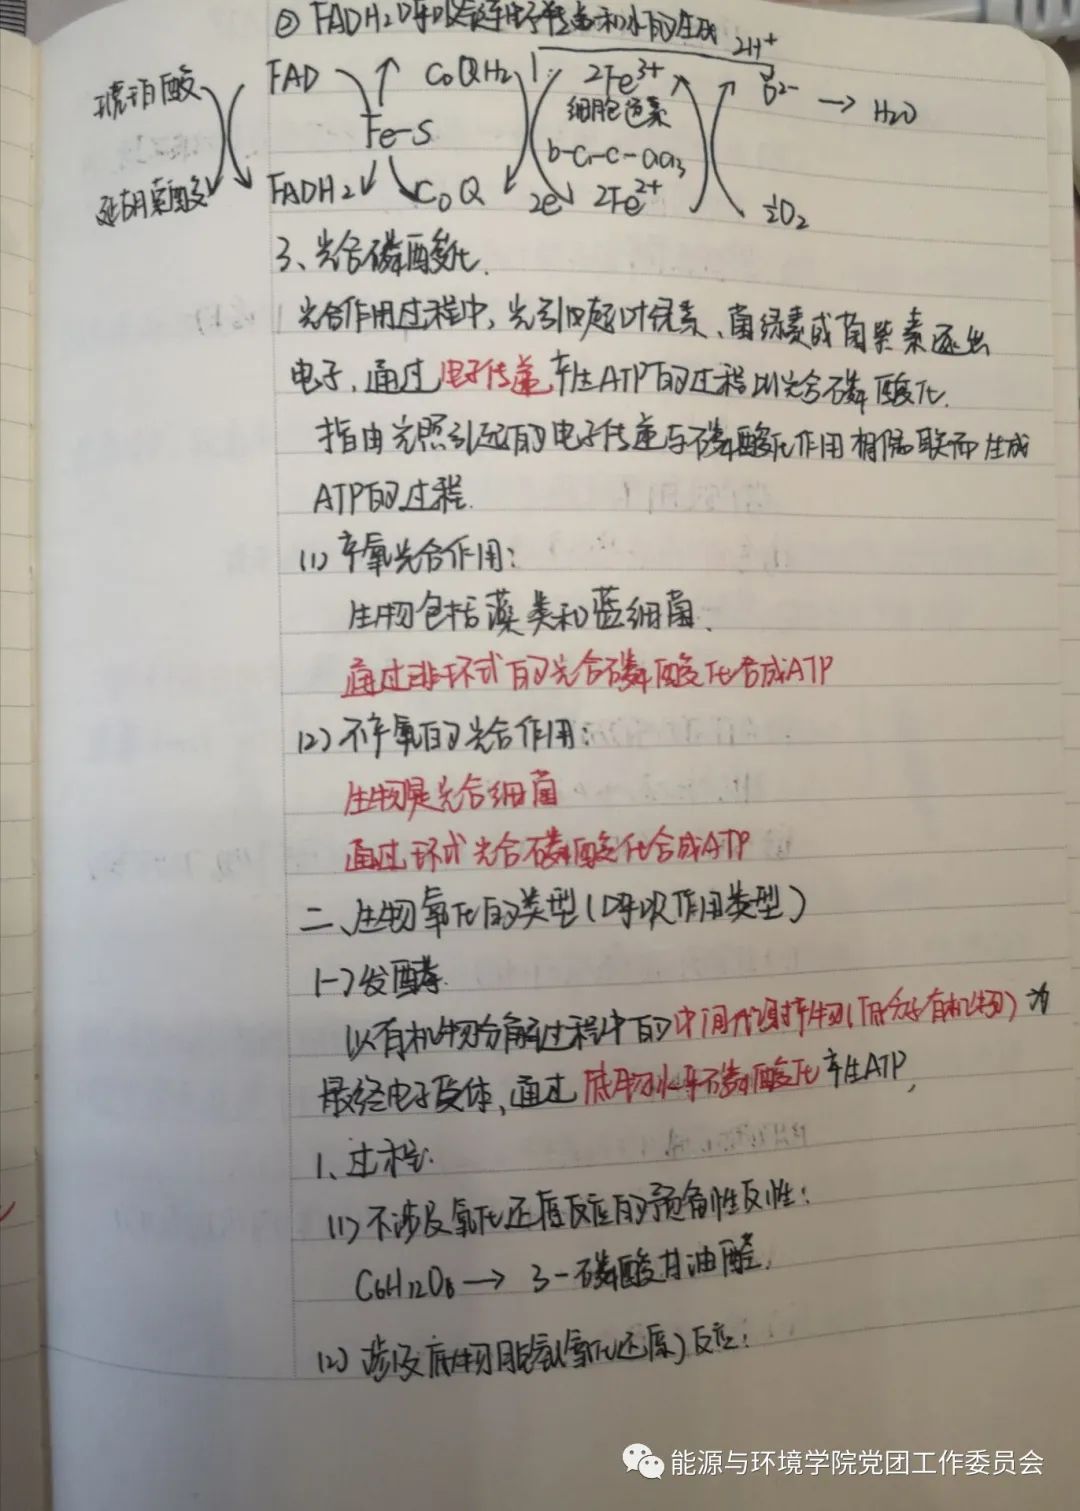 ② FADH2呼吸链电子传递和水的生成
2H+
琥珀酸 FAD CoQH2 2Fe3+ O2- → H2O
细胞色素
Fe-S
b-c1-c-aa3
延胡索酸 FADH2 CoQ 2e 2Fe2+ ½O2
3、光合磷酸化.
光合作用过程中,光引起叶绿素、菌绿素或菌紫素逐出
电子,通过电子传递产生ATP的过程以光合磷酸化.
指由光照引起的电子传递与磷酸化作用相偶联而生成
ATP的过程.
(1) 产氧光合作用:
生物包括藻类和蓝细菌.
通过非环式的光合磷酸化合成ATP
(2) 不产氧的光合作用:
生物是光合细菌
通过环式光合磷酸化合成ATP
二、生物氧化的类型(呼吸作用类型)
(一)发酵
以有机物分解过程中的中间代谢产物(低分子有机物)为
最终电子受体,通过底物水平磷酸化产生ATP,
1、过程.
(1) 不涉及氧化还原反应的预备性反性:
C6H12O6 → 3-磷酸甘油醛.
(2) 涉及底物脱氢(氧化还原)反应:
能源与环境学院党团工作委员会